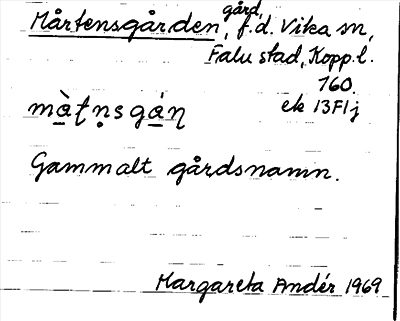 Mårtensgården, gård, f.d. Vika sn,
Falu stad, Kopp.l.
160.
ek 13F1j
màʈṇsgáɳ
Gammalt gårdsnamn.
Margareta Andér 1969